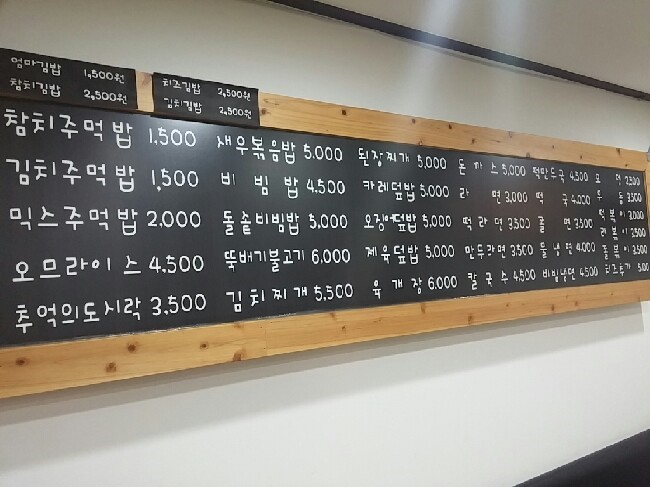 엄마김밥 1,500원
참치김밥 2,500원
치즈김밥 2,500원
김치김밥 2,500원
참치주먹밥 1,500
김치주먹밥 1,500
믹스주먹밥 2,000
오므라이스 4,500
추억의도시락 3,500
새우볶음밥 5,000
비빔밥 4,500
돌솥비빔밥 5,000
뚝배기불고기 6,000
김치찌개 5,500
된장찌개 5,000
카레덮밥 5,000
오징어덮밥 5,000
제육덮밥 5,000
육개장 6,000
돈까스 5,000
라면 3,000
떡라면 3,500
만두라면 3,500
칼국수 4,500
떡만두국 4,500
떡국 4,000
쫄면 3,500
물냉면 4,000
비빔냉면 4,500
오뎅 2,500
떡볶이 3,000
라볶이 3,500
쫄볶이 3,500